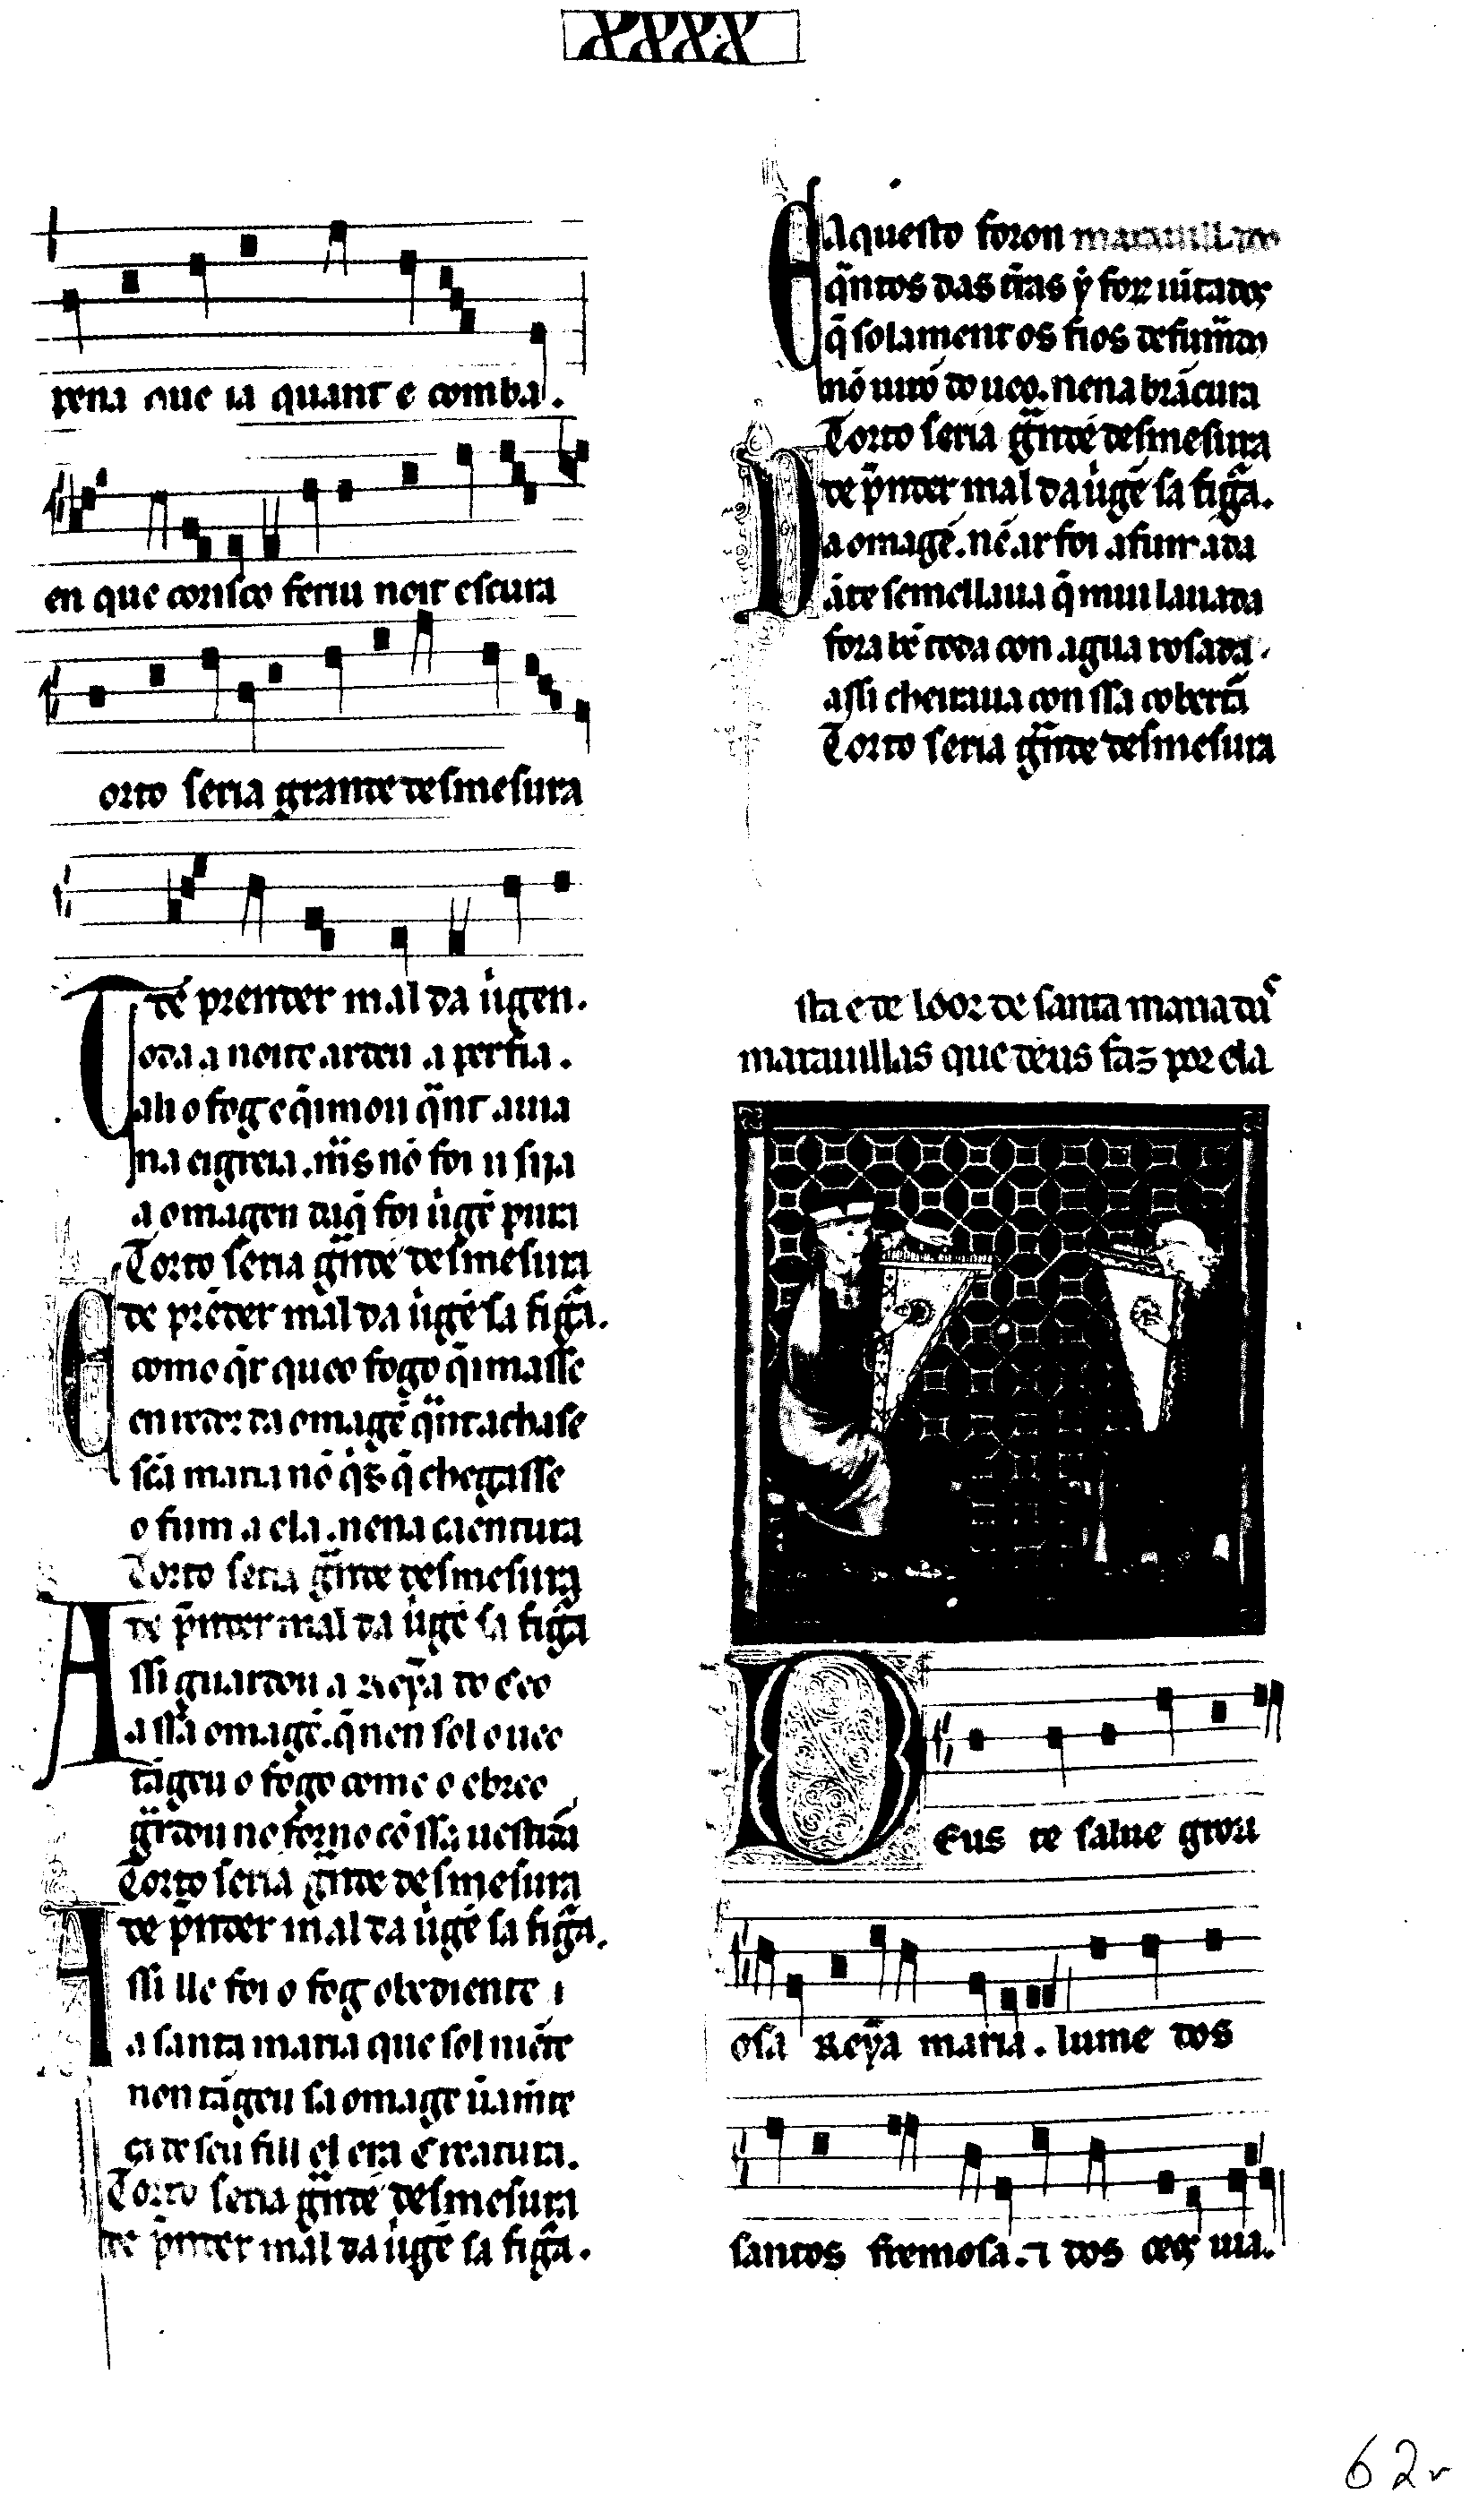 XXXX
pena que ia quant é comba.
en que corisco feriu noit escura
orto seria grande desmesura
de prender mal da uĩgen.
Toda a noite ardeu a perfia.
ali o fog e q̃imou q̃nt auia
na eigreia. mais nõ foi u siia
a omagen da q̃ foi uĩgẽ pura
Torto seria g̃nde desmesura
de prẽder mal da uĩgẽ sa fig̃a.
E como q̃r que o fogo q̃imasse
en redor da omagẽ q̃nt achasse
sc̃a maria nõ q̃s q̃ chegasse
o fum a ela. nena caentura
Torto seria g̃nde desmesura
de p̃nder mal da uĩgẽ sa fig̃a
Assi guardou a Reỹa do ceo
a ssa omagẽ. q̃ nen sol o ueo
tãgeu o fogo come o ebreo
g̃rdou no forno cõ ssa uestidã
Torto seria g̃nde desmesura
de p̃nder mal da uĩgẽ sa fig̃a.
Assi lle foi o fog obediente
a santa maria que sol niẽte
non tãgeu sa omage uãmẽte
ca de seu fill el era creatura.
Torto seria g̃nde desmesura
de p̃nder mal da uĩgẽ sa fig̃a.
E daquesto foron marauillados
q̃ntos das tr̃as ỹ forõ iũtados
q̃ solament os fios defumados
nõ uirõ do ueo. nena brãcura
Torto seria g̃nde desmesura
de p̃nder mal da uĩgẽ sa fig̃a.
Da omagẽ. nẽ ar foi afumada
ãte semellaua q̃ mui lauada
fora bẽ toda con agua rosada.
assi cheiraua con ssa cobertã
Torto seria g̃nde desmesura
sta e de loor de santa maria das
marauillas que deus faz por ela
Deus te salue grori
osa Reỹa maria. lume dos
santos fremosa. ⁊ dos ceos uia.
62r